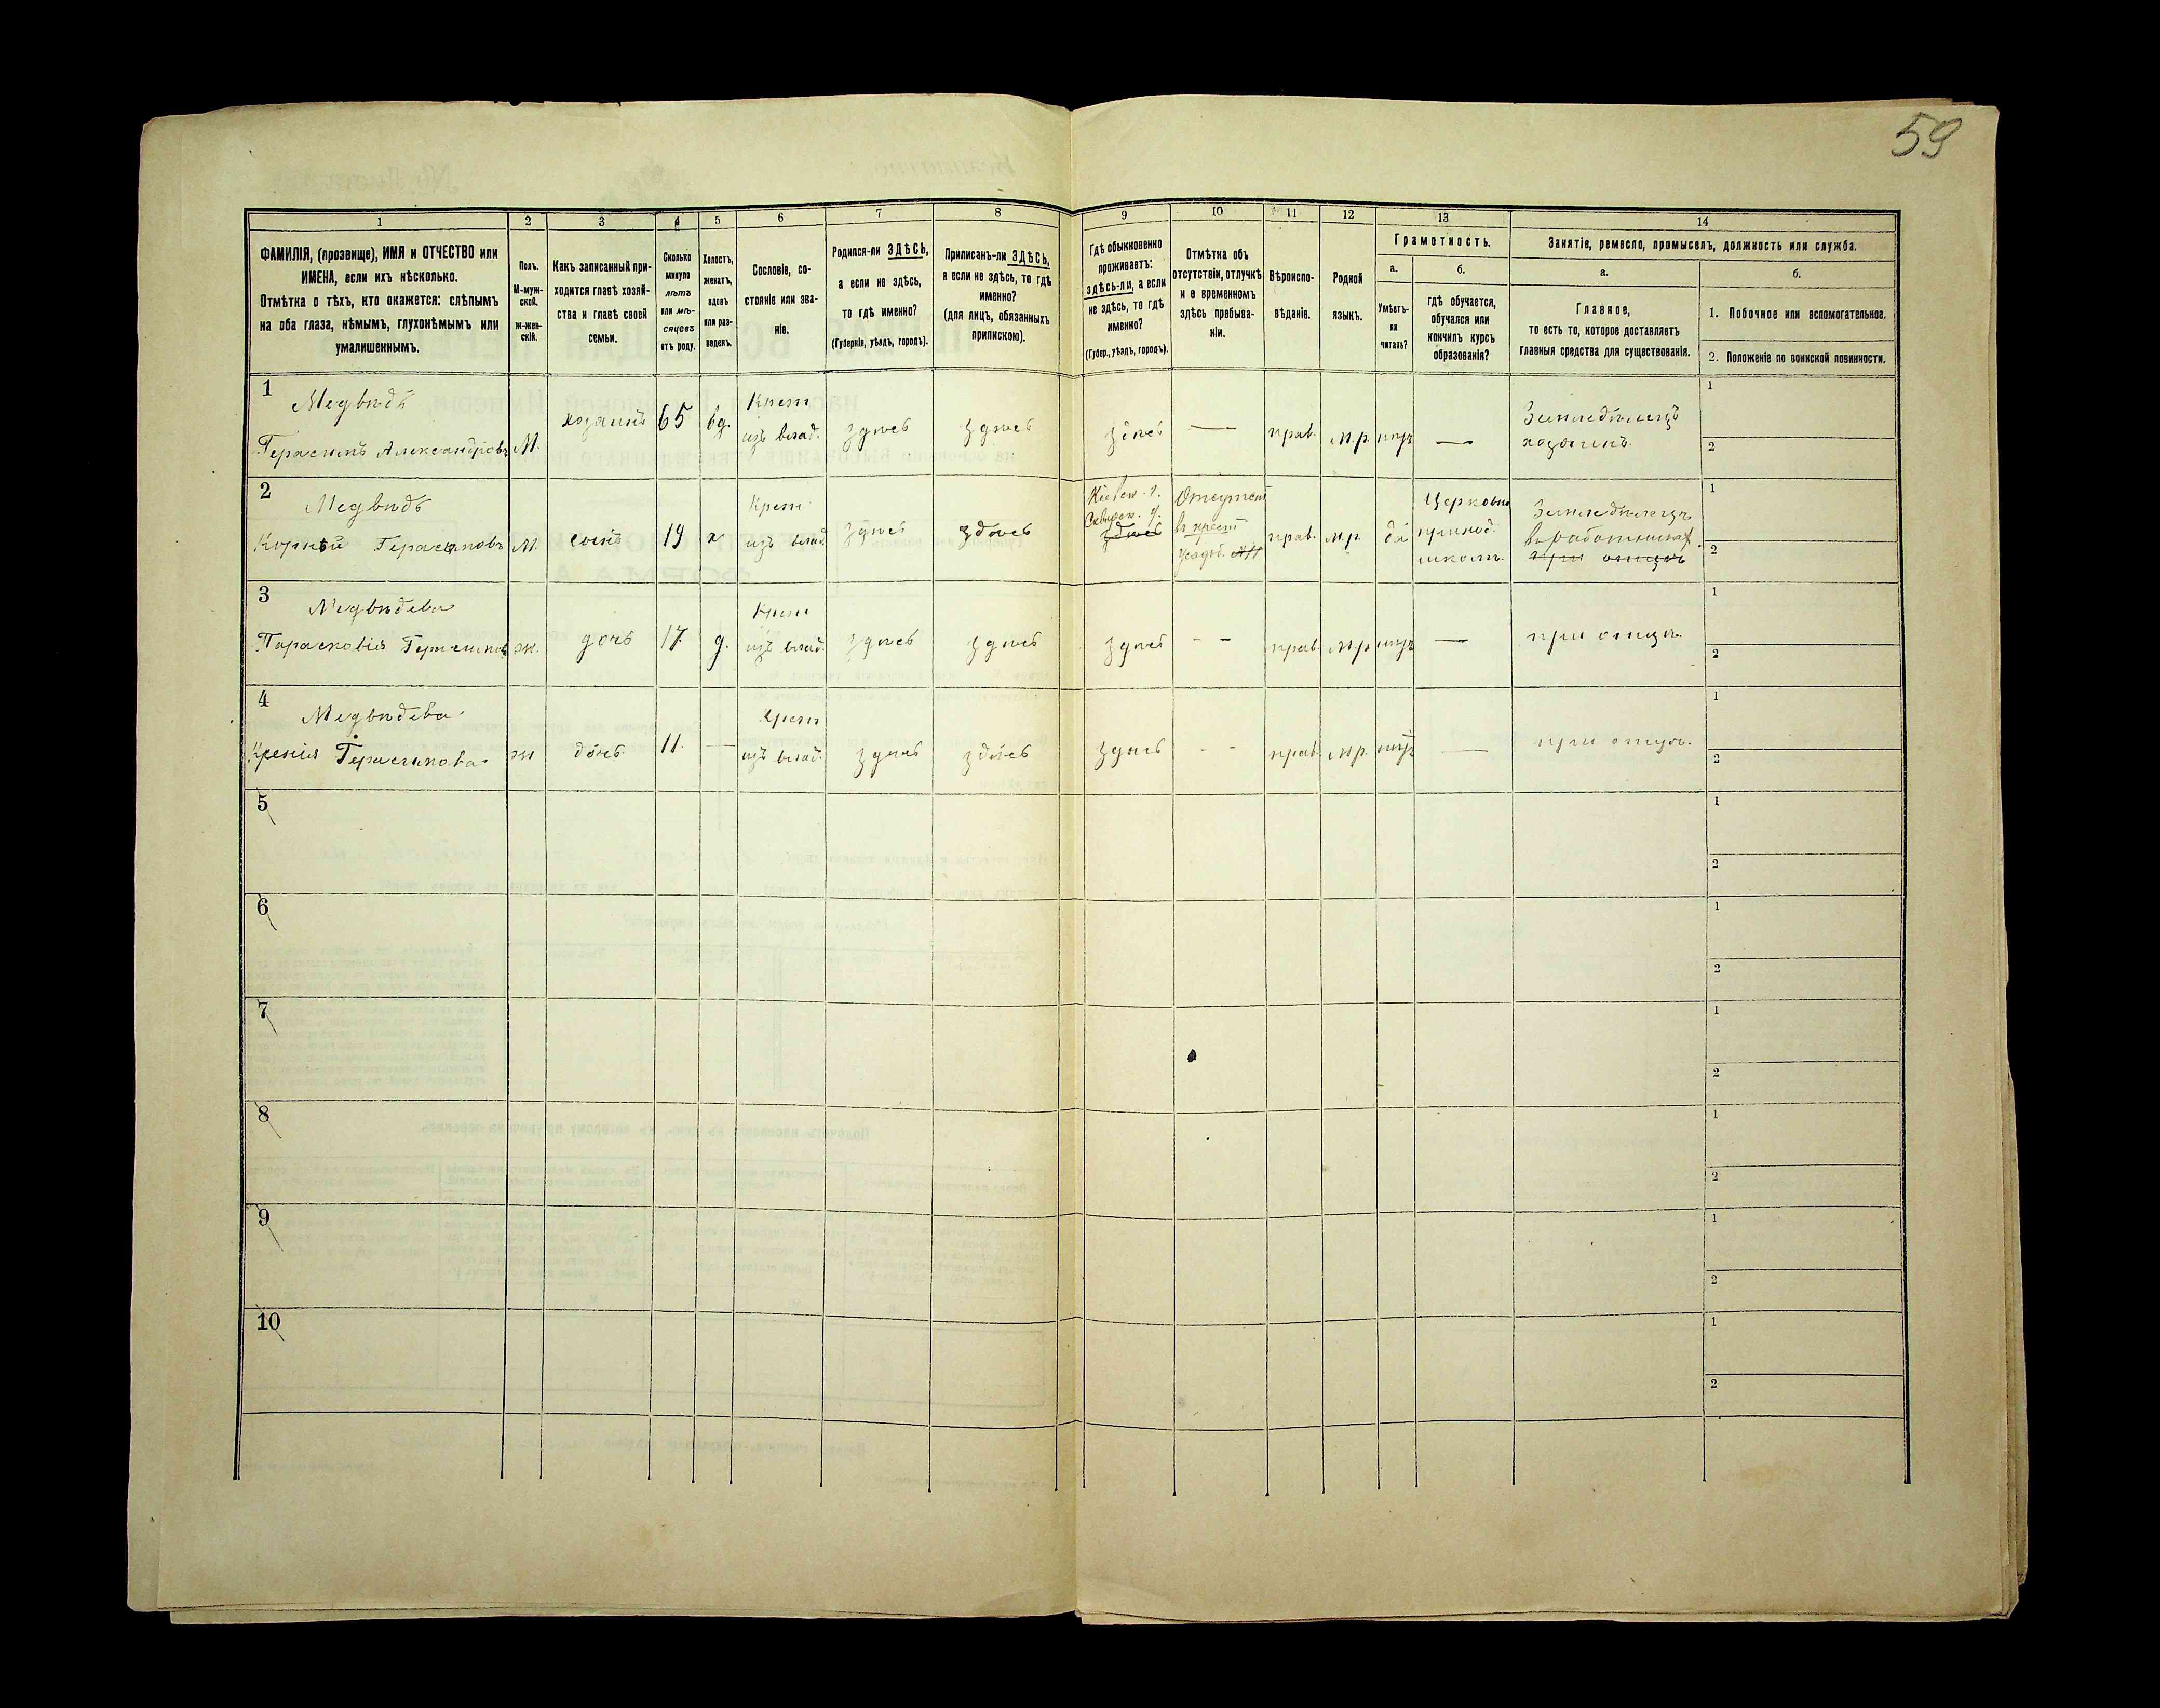 59
1 2 3 4 5 6 7 8 9 10 11 12 13 14
ФАМИЛІЯ, (прозвище), ИМЯ и ОТЧЕСТВО или
ИМЕНА, если ихъ нѣсколько.
Отмѣтка о тѣхъ, кто окажется: слѣпымъ
на оба глаза, нѣмымъ, глухонѣмымъ или
умалишеннымъ.
Полъ.
М-муж-
ской.
ж-жен-
скій.
Какъ записанный при-
ходится главѣ хозяй-
ства и главѣ своей
семьи.
Сколько
минуло
лѣтъ
или мѣ-
сяцевъ
отъ роду.
Холостъ,
женатъ,
вдовъ
или раз-
веденъ.
Сословіе, со-
стояніе или зва-
ніе.
Родился-ли ЗДѢСЬ,
а если не здѣсь,
то гдѣ именно?
(Губернія, уѣздъ, городъ).
Приписанъ-ли ЗДѢСЬ,
а если не здѣсь, то гдѣ
именно?
(для лицъ, обязанныхъ
припискою).
Гдѣ обыкновенно
проживаетъ:
здѣсь-ли, а если
не здѣсь, то гдѣ
именно?
(Губер., уѣздъ, городъ).
Отмѣтка объ
отсутствіи, отлучкѣ
и о временномъ
здѣсь пребыва-
ніи.
Вѣроиспо-
вѣданіе.
Родной
языкъ.
Грамотность.
а.
Умѣетъ-
ли
читать?
б.
гдѣ обучается,
обучался или
кончилъ курсъ
образованія?
Занятіе, ремесло, промыселъ, должность или служба.
а.
Главное,
то есть то, которое доставляетъ
главныя средства для существованія.
б.
1. Побочное или вспомогательное.
2. Положеніе по воинской повинности.
1
Медвѣдь
Герасимъ Александровъ
М.
хозаинъ
65
вд.
Крест
изъ влад.
здѣсь
здѣсь
здѣсь
—
прав.
м.р.
нѣтъ
—
Земледѣлецъ
хозаинъ.
1
2
2
Медвѣдь
Корнѣй Герасимовъ
М.
сынъ
19
х
Крест
изъ влад.
здѣсь
здѣсь
Кіевск. г.
Сквирск. у.
здѣсь
Отсутст
въ крест
усадьб.
прав.
м.р.
да
Церковно
приход.
школѣ.
Земледѣлецъ
въ работникахъ
при отцѣ
1
2
3
Медвѣдева
Парасковія Герасимова
ж.
дочь
17
д.
Крест
изъ влад.
здѣсь
здѣсь
здѣсь
- -
прав.
м.р.
нѣтъ
—
при отцѣ.
1
2
4
Медвѣдева
Ксенія Герасимова
ж
дочь
11.
—
Крест
изъ влад.
здѣсь
здѣсь
здѣсь
- -
прав.
м.р.
нѣтъ
—
при отцѣ.
1
2
5
1
2
6
1
2
7
1
2
8
1
2
9
1
2
10
1
2